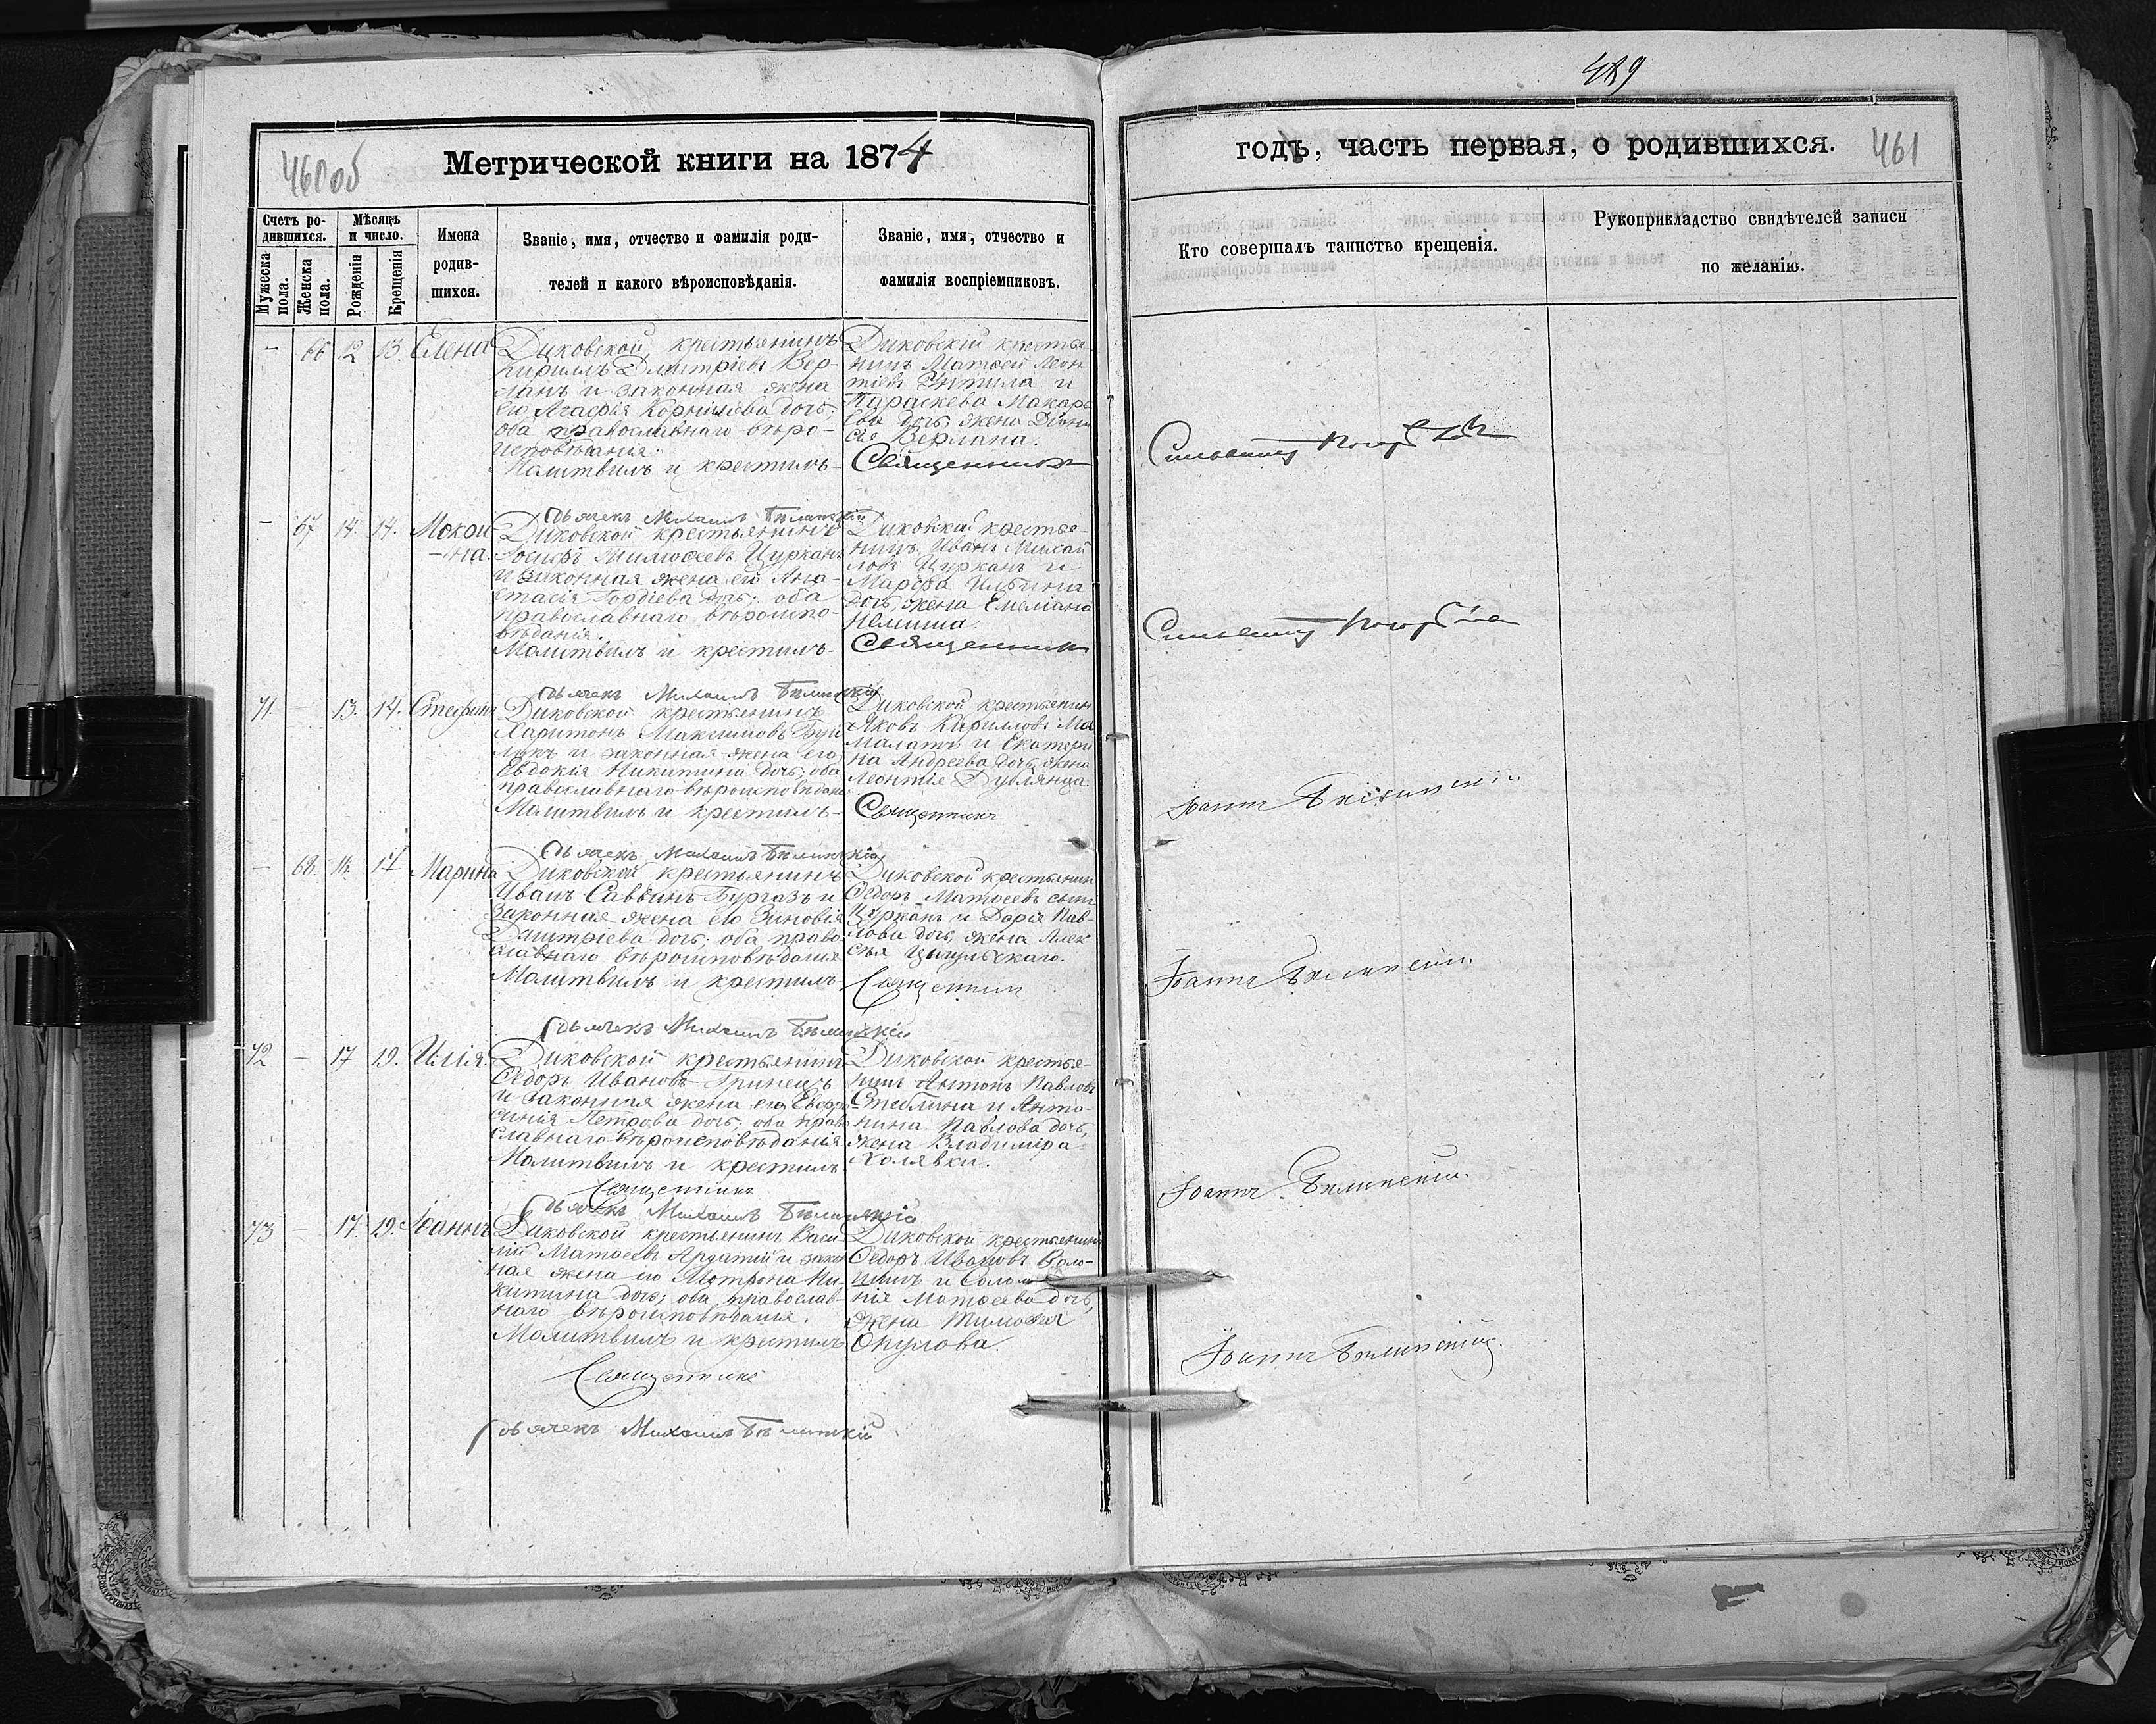 489
460об
Метрической книги на 1874
годъ, часть первая, о родившихся.
461
Счетъ ро-
дившихся.
Мужеска
пола.
Женска
пола.
Мѣсяцъ
и число.
Рожденія
Крещенія
Имена
родив-
шихся.
Званіе, имя, отчество и фамилія роди-
телей и какого вѣроисповѣданія.
Званіе, имя, отчество и
фамилія воспріемниковъ.
Кто совершалъ таинство крещенія.
Рукоприкладство свидѣтелей записи
по желанію.
— 66 12 13 Елена
Диковской крестьянинъ
Кириллъ Дмитріевъ Вер-
ланъ и законная жена
его Агафія Корнилова дочь;
оба православнаго вѣро-
исповѣданія.
Молитвилъ и крестилъ
Диковскій крестья-
нинъ Матѳей Леон-
тіевъ и
Параскева Макарь
ева дочь жена Діони
сія Верлана.
Священникъ
Дьячекъ Михаилъ Бѣлинскій
— 67 14. 14. Мокри
-на.
Диковской крестьянинъ
Іосифъ Тимоѳеевъ Цурканъ
и законная жена его Ана-
стасія Гордіева дочь; оба
православнаго вѣроиспо-
вѣданія.
Молитвилъ и крестилъ
Диковской крестья-
нинъ Иванъ Михай
ловъ Цурканъ и
Марѳа Ильина
дочь, жена Емеліана
Священникъ
Дьячекъ Михаилъ Бѣлинскій
71. — 13. 14. Стефанъ
Диковской крестьянинъ
Харитонъ Максимовъ
и законная жена его
Евдокія Никитина дочь; оба
православнаго вѣроисповѣдан
Молитвилъ и крестилъ
Диковской крестьянин
Яковъ Кирилловъ Ма
малатъ и Екатери
на Андреева дочь, жена
Леонтія Дублянца.
Священникъ
Іоаннъ Бѣлинскій
Дьячекъ Михаилъ Бѣлинскій
— 68. 14. 17 Марина
Диковской крестьянинъ
Иванъ Саввинъ Бургазъ и
законная жена его Зиновія
Дмитріева дочь; оба право
славнаго вѣроисповѣданія
Молитвилъ и крестилъ
Диковской крестьянин
Ѳедоръ Матѳеевъ сынъ
Цурканъ и Дарія Пав-
лова дочь, жена Алек-
сѣя
Священникъ
Іоаннъ Бѣлинскій
Дьячекъ Михаилъ Бѣлинскій
72 — 17 19. Илія.
Диковской крестьянинъ
Ѳедоръ Ивановъ Гринецъ
и законная жена его Евфро
синія Петрова дочь; оба прав
славнаго вѣроисповѣданія
Молитвилъ и крестилъ
Священникъ
Диковской крестья-
нинъ Антонъ Павловъ
Стеблина и Анто-
нина Павлова дочь,
жена Владиміра
Холявки.
Іоаннъ Бѣлинскій.
Дьячекъ Михаилъ Бѣлинскій
73 — 17. 19. Іоаннъ
Диковской крестьянинъ Васи
лій Матѳеевъ и закон
ная жена его Мотрона Ни-
китина дочь; оба православ-
наго вѣроисповѣданія.
Молитвилъ и крестилъ
Священникъ
Диковской крестьянинъ
Ѳедоръ Ивановъ Воло-
шинъ и Соломо
нія Матѳеева дочь,
жена Тимоѳея
Окулова.
Іоаннъ Бѣлинскій.
Дьячекъ Михаилъ Бѣлинскій